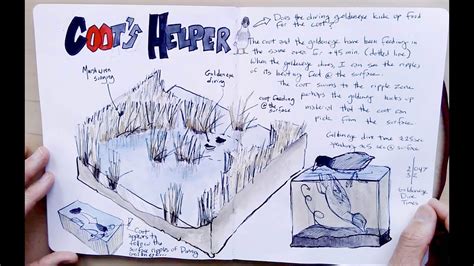 COOT'S HELPER
→ Does the diving goldeneye kick up food
for the coot?
The coot and the goldeneye have been feeding in
the same area for +45 min. (dotted line)
When the goldeneye dives, I can see the ripples
of its beating feet @ the surface...
The coot swims to the ripple zone
perhaps the goldeneye kicks up
material that the coot can
pick from the surface
Marsh wren
singing
Goldeneye
diving
coot feeding
@ the
surface
Goldeneye dive time ≈25sec
@ surface
Goldeneye
Dive
Times
Coot
appears to
follow the
surface ripples of Diving